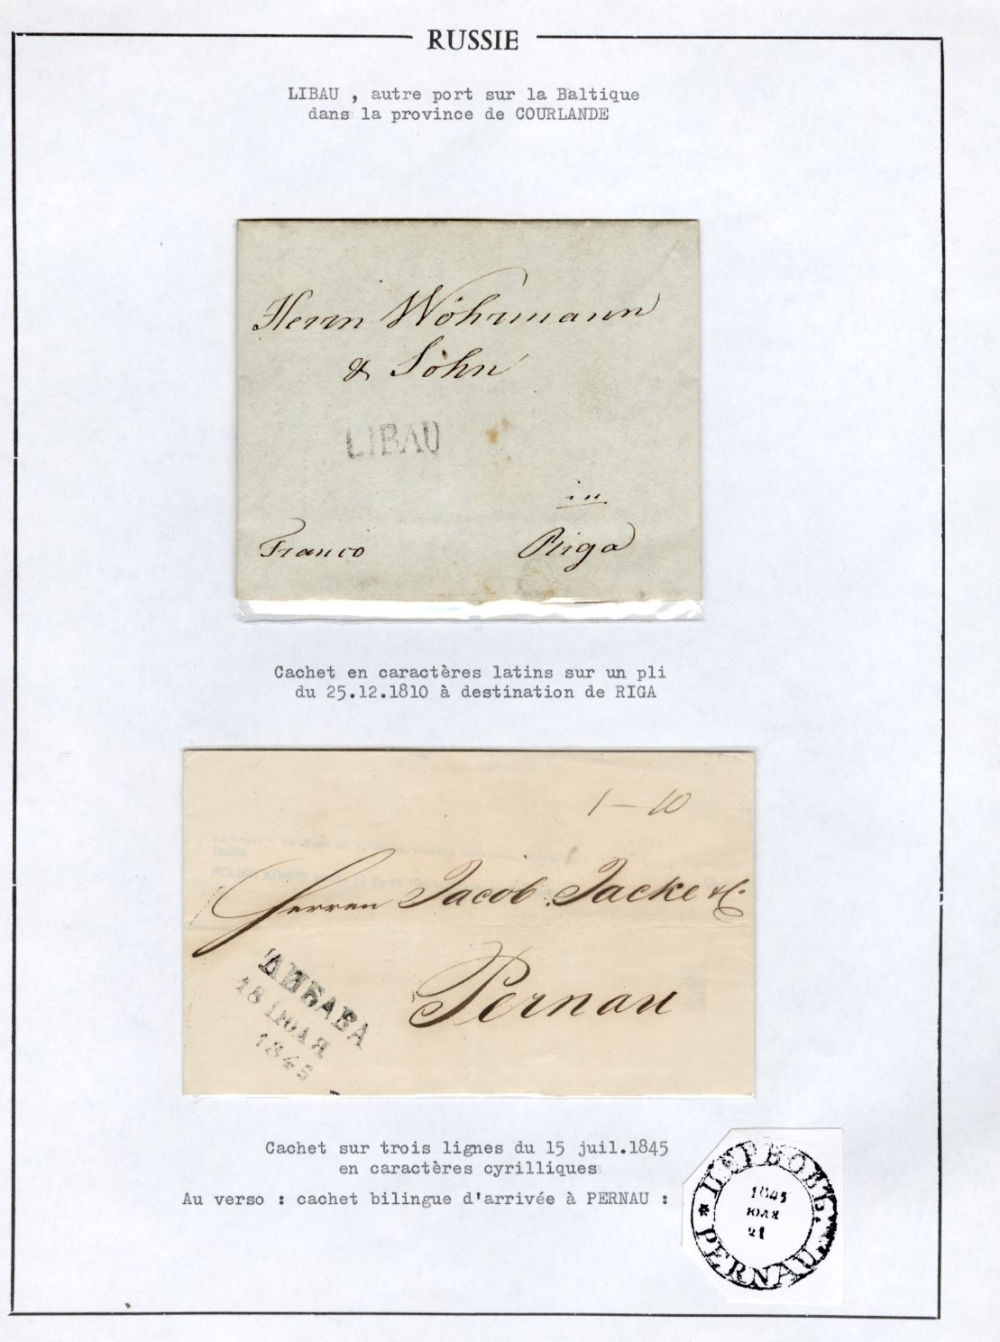 RUSSIE
LIBAU , autre port sur la Baltique
dans la province de COURLANDE
Herrn Wöhrmann
& Sohn
LIBAU
in
Franco
Riga
Cachet en caractères latins sur un pli
du 25.12.1810 à destination de RIGA
1-10
Herren Jacob Jacke & C.
Pernau
ЛИБАВА
18 ІЮЛЯ
1845
Cachet sur trois lignes du 15 juil.1845
en caractères cyrilliques
Au verso : cachet bilingue d'arrivée à PERNAU :
1845
ІЮЛЯ
21
* PERNAU